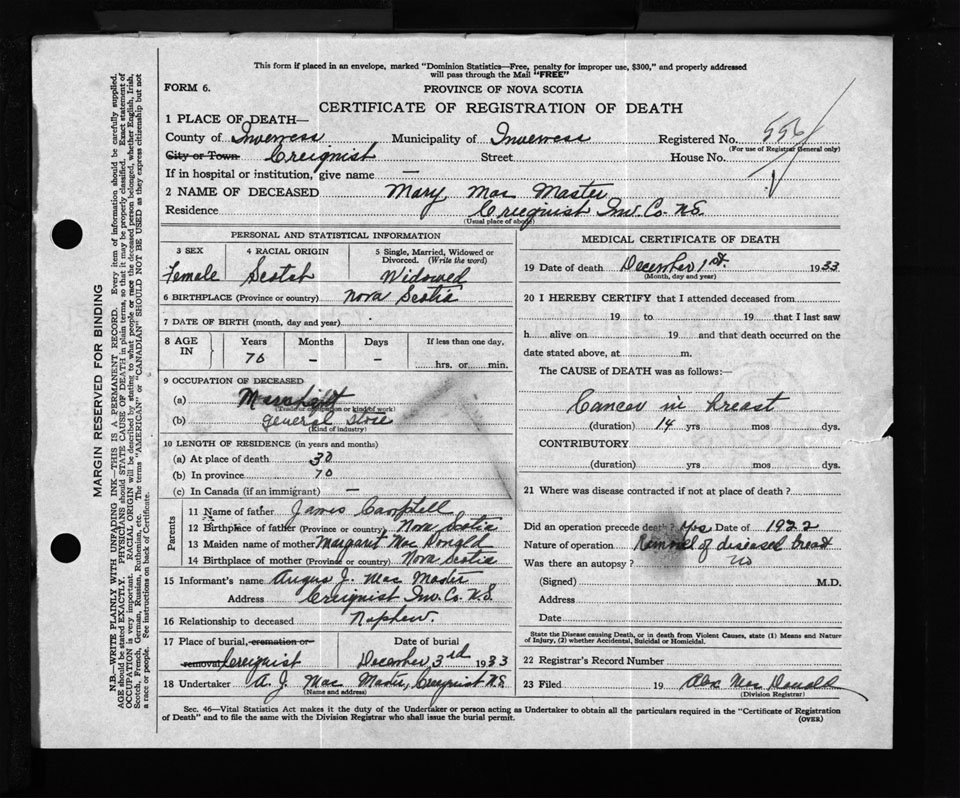 This form if placed in an envelope, marked "Dominion Statistics—Free, penalty for improper use, $300," and properly addressed
will pass through the Mail "FREE"
FORM 6.
PROVINCE OF NOVA SCOTIA
CERTIFICATE OF REGISTRATION OF DEATH
1 PLACE OF DEATH—
County of Inverness Municipality of Inverness Registered No. 556
(For use of Registrar General only)
City or Town Creignish Street House No.
If in hospital or institution, give name —
2 NAME OF DECEASED Mary Mac Master
Residence Creignish Inv. Co. N.S.
(Usual place of abode)
PERSONAL AND STATISTICAL INFORMATION
3 SEX 4 RACIAL ORIGIN 5 Single, Married, Widowed or Divorced. (Write the word)
Female Scotch Widowed
6 BIRTHPLACE (Province or country) Nova Scotia
7 DATE OF BIRTH (month, day and year)
8 AGE IN Years Months Days If less than one day,
70 — — hrs. or min.
9 OCCUPATION OF DECEASED
(a) Merchant
(Trade or occupation or kind of work)
(b) General Store
(Kind of industry)
10 LENGTH OF RESIDENCE (in years and months)
(a) At place of death 30
(b) In province 70
(c) In Canada (if an immigrant) —
Parents
11 Name of father James Campbell
12 Birthplace of father (Province or country) Nova Scotia
13 Maiden name of mother Margaret Mac Donald
14 Birthplace of mother (Province or country) Nova Scotia
15 Informant's name Angus J. Mac Master
Address Creignish Inv. Co. N.S.
16 Relationship to deceased Nephew.
17 Place of burial, cremation or removal Creignist Date of burial December 3rd 1933
18 Undertaker A. J. Mac Master, Creignist N.S.
(Name and address)
MEDICAL CERTIFICATE OF DEATH
19 Date of death December 1st. 1933
(Month, day and year)
20 I HEREBY CERTIFY that I attended deceased from
19 to 19 that I last saw
h alive on 19 and that death occurred on the
date stated above, at m.
The CAUSE of DEATH was as follows:—
Cancer in breast
(duration) 14 yrs mos dys.
CONTRIBUTORY
(duration) yrs mos dys.
21 Where was disease contracted if not at place of death?
Did an operation precede death? Yes Date of 1922
Nature of operation Removel of diseased breast
Was there an autopsy? No
(Signed) M.D.
Address
Date
State the Disease causing Death, or in death from Violent Causes, state (1) Means and Nature
of Injury, (2) whether Accidental, Suicidal or Homicidal.
22 Registrar's Record Number
23 Filed 19 Alex Mac Donald
(Division Registrar)
Sec. 46—Vital Statistics Act makes it the duty of the Undertaker or person acting as Undertaker to obtain all the particulars required in the "Certificate of Registration
of Death" and to file the same with the Division Registrar who shall issue the burial permit.
(OVER)
MARGIN RESERVED FOR BINDING
N.B.—WRITE PLAINLY WITH UNFADING INK—THIS IS A PERMANENT RECORD. Every item of information should be carefully supplied.
AGE should be stated EXACTLY. PHYSICIANS should STATE CAUSE OF DEATH in plain terms, so that it may be properly classified. Exact statement of
OCCUPATION is very important. RACIAL ORIGIN will be described by stating to what people or race the deceased person belonged, whether English, Irish,
Scotch, French, German, Russian, Ruthenian, etc. The terms "AMERICAN" or "CANADIAN" SHOULD NOT BE USED as they express citizenship but not
a race or people. See instructions on back of Certificate.